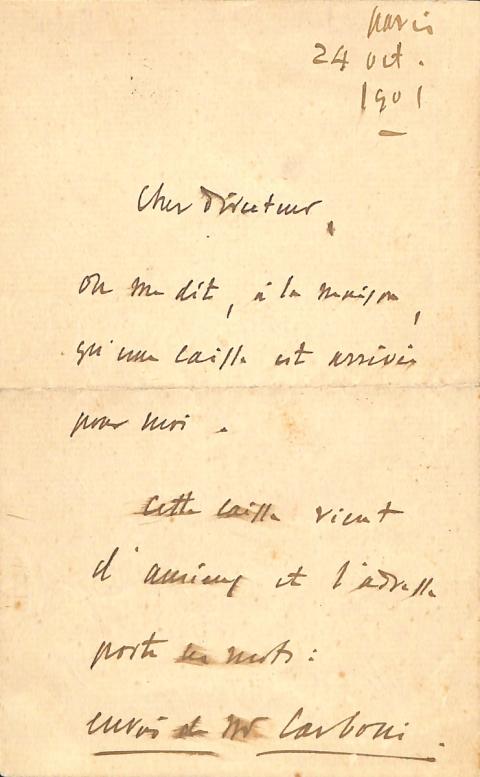 Paris
24 oct.
1901
Cher Directeur,
on me dit, à la maison,
qu'une caisse est arrivée
pour moi.
Cette caisse vient
d'Amiens et l'adresse
porte ces mots :
envoi de Mr Carboni.